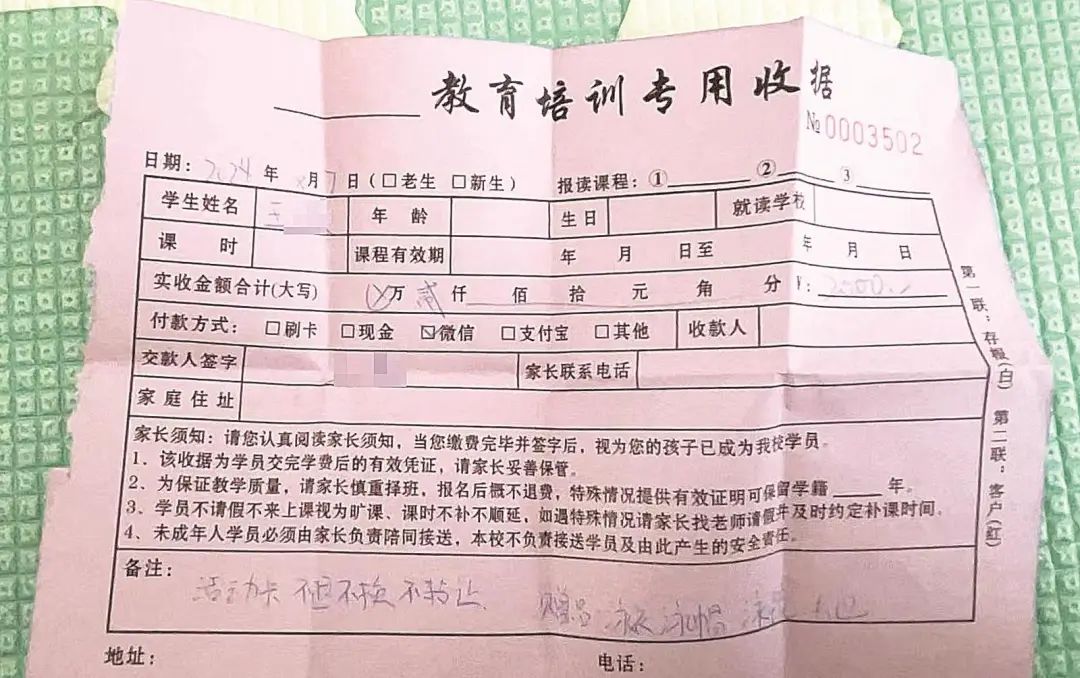 教育培训专用收据
№ 0003502
日期：2024 年 月 7 日（□老生 □新生） 报读课程：①______ ②______ ③______
学生姓名 王 年龄 生日 就读学校
课时 课程有效期 年 月 日至 年 月 日
实收金额合计(大写) ⊗万 贰仟 佰 拾 元 角 分 ¥：2000.
付款方式：□刷卡 □现金 ☑微信 □支付宝 □其他 收款人
交款人签字 家长联系电话
家庭住址
家长须知：请您认真阅读家长须知，当您缴费完毕并签字后，视为您的孩子已成为我校学员。
1、该收据为学员交完学费后的有效凭证，请家长妥善保管。
2、为保证教学质量，请家长慎重择班，报名后概不退费，特殊情况提供有效证明可保留学籍____年。
3、学员不请假不来上课视为旷课、课时不补不顺延，如遇特殊情况请家长找老师请假并及时约定补课时间。
4、未成年人学员必须由家长负责陪同接送，本校不负责接送学员及由此产生的安全责任。
备注：
活动卡 不退不换不转让 赠品 泳衣 泳帽 泳
地址： 电话：
第一联：存根(白) 第二联：客户(红)